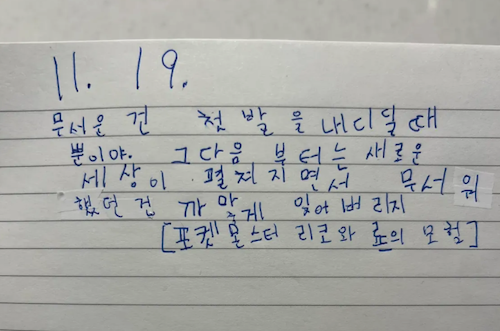 11. 19.
무서운 건 첫 발을 내디딜 때
뿐이야. 그다음 부터는 새로운
세상이 펼쳐지면서 무서워
했던 건 까맣게 잊어버리지
[포켓몬스터 리코와 로의 모험]